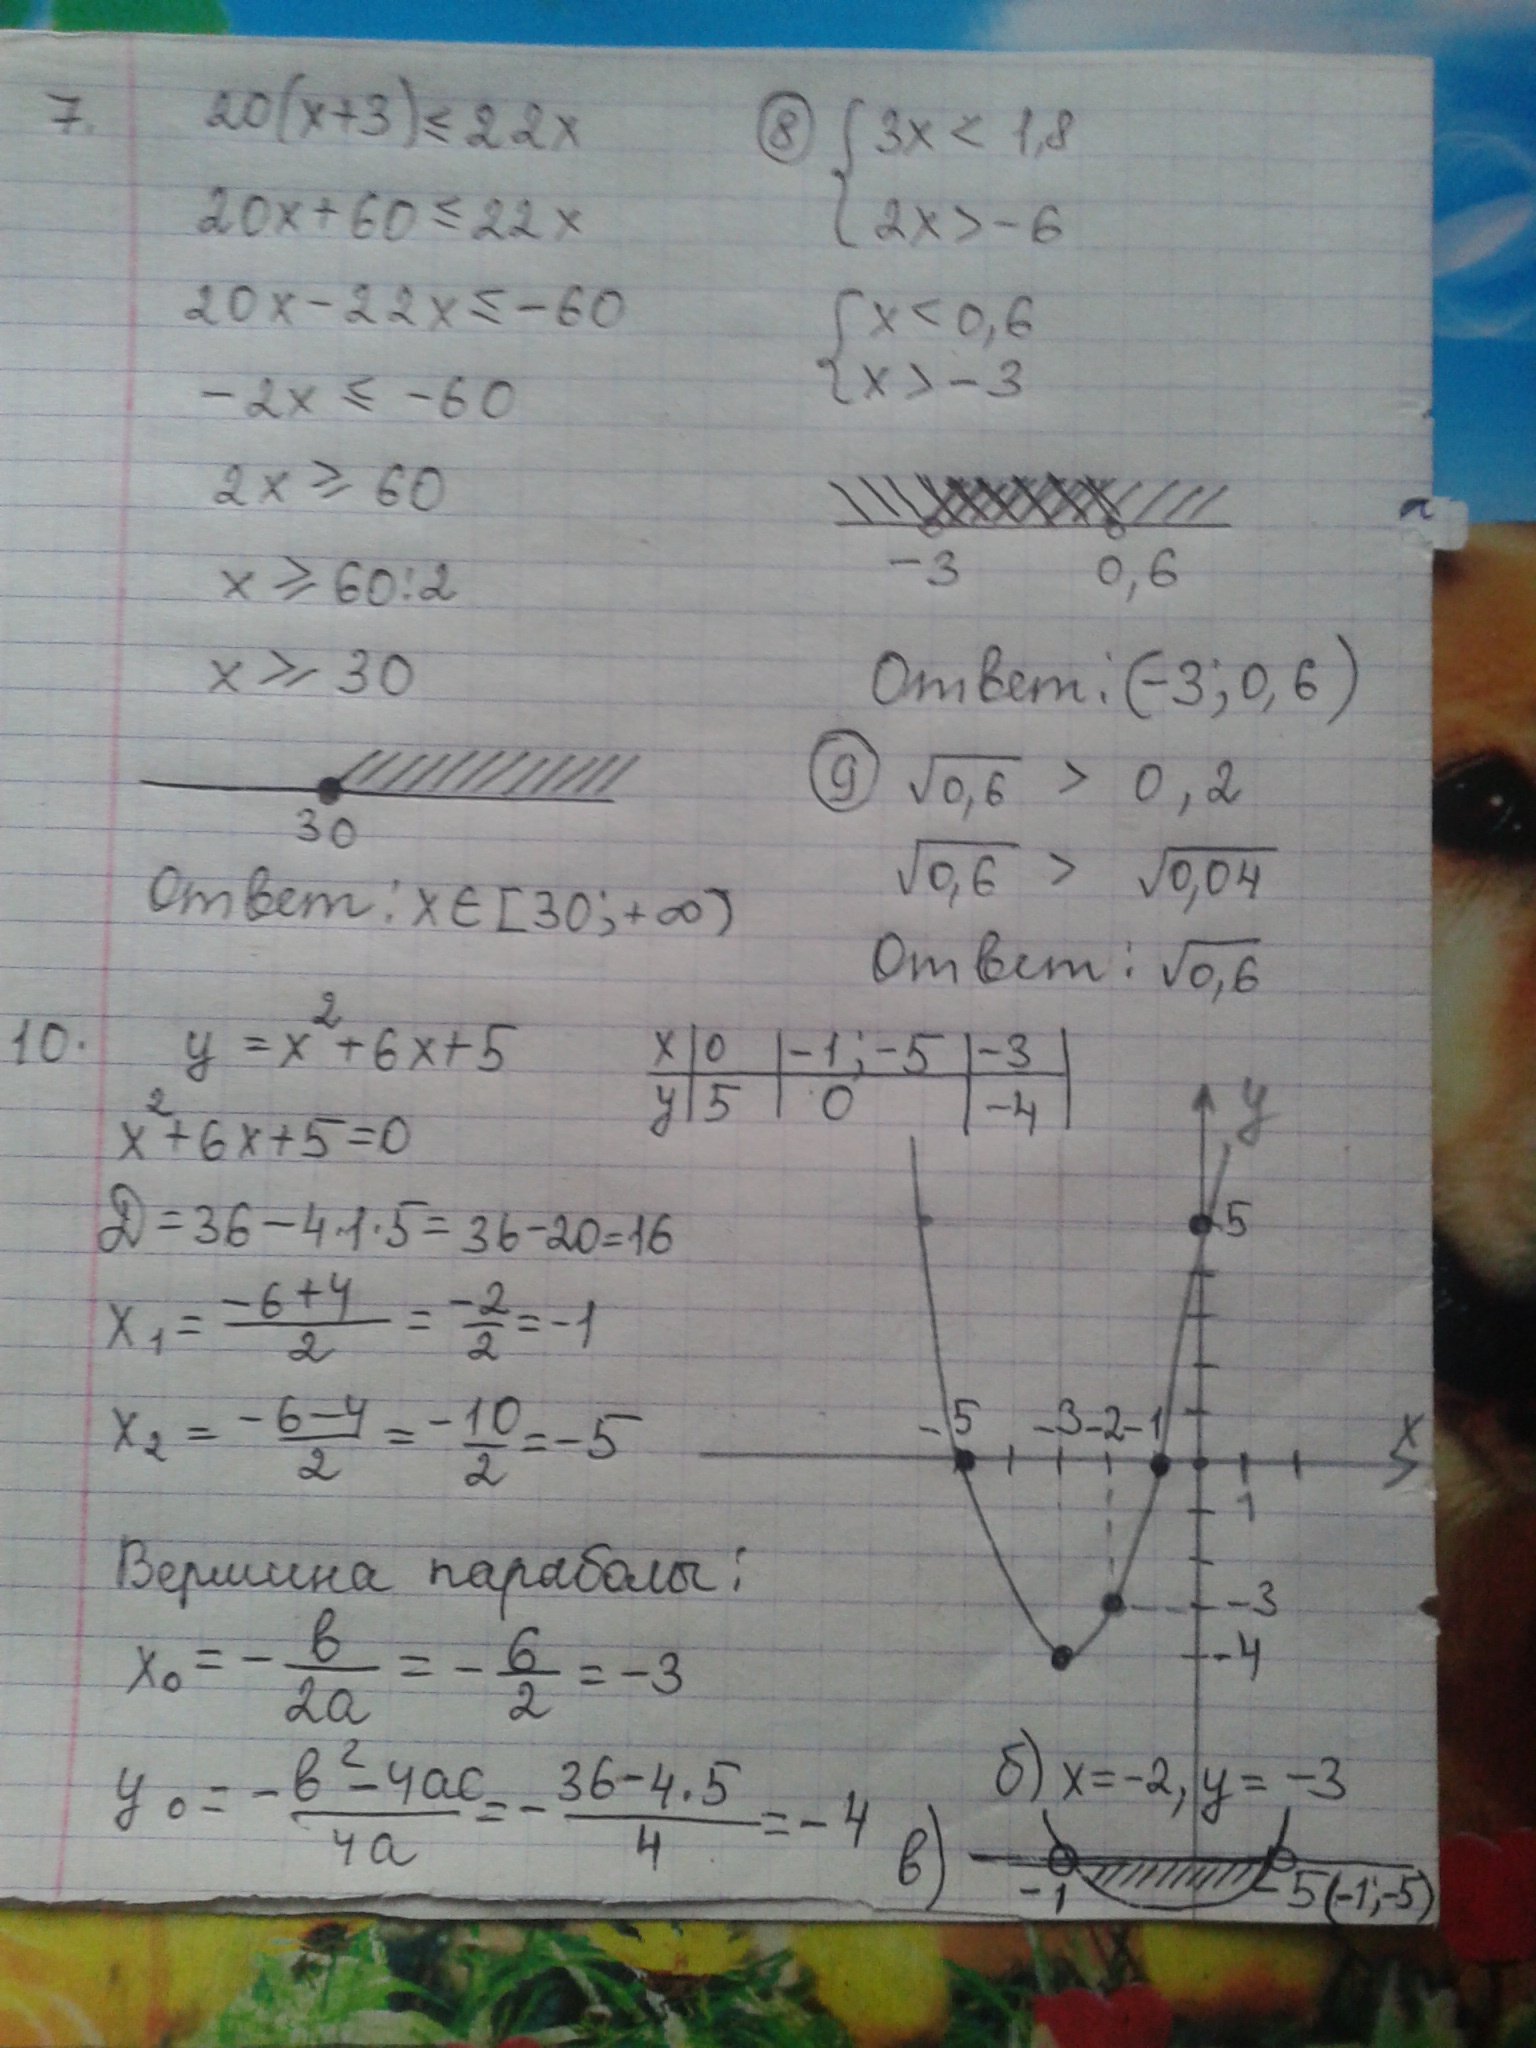 7. 20(x+3)≤22x
20x+60≤22x
20x-22x≤-60
-2x≤-60
2x≥60
x≥60:2
x≥30
30
Ответ: x∈[30;+∞)
8 {3x<1,8
{2x>-6
{x<0,6
{x>-3
-3 0,6
Ответ: (-3;0,6)
9 √0,6 > 0,2
√0,6 > √0,04
Ответ: √0,6
10. y=x²+6x+5
x²+6x+5=0
Д=36-4·1·5=36-20=16
x₁=(-6+4)/2=-2/2=-1
x₂=(-6-4)/2=-10/2=-5
Вершина параболы:
x₀=-в/2a=-6/2=-3
y₀=-(в²-4ac)/4a=-(36-4·5)/4=-4
x|0|-1;-5|-3|
y|5|0|-4|
y
5
-5 -3 -2 -1 x
1
-3
-4
б) x=-2, y=-3
в) -1 -5 (-1;-5)